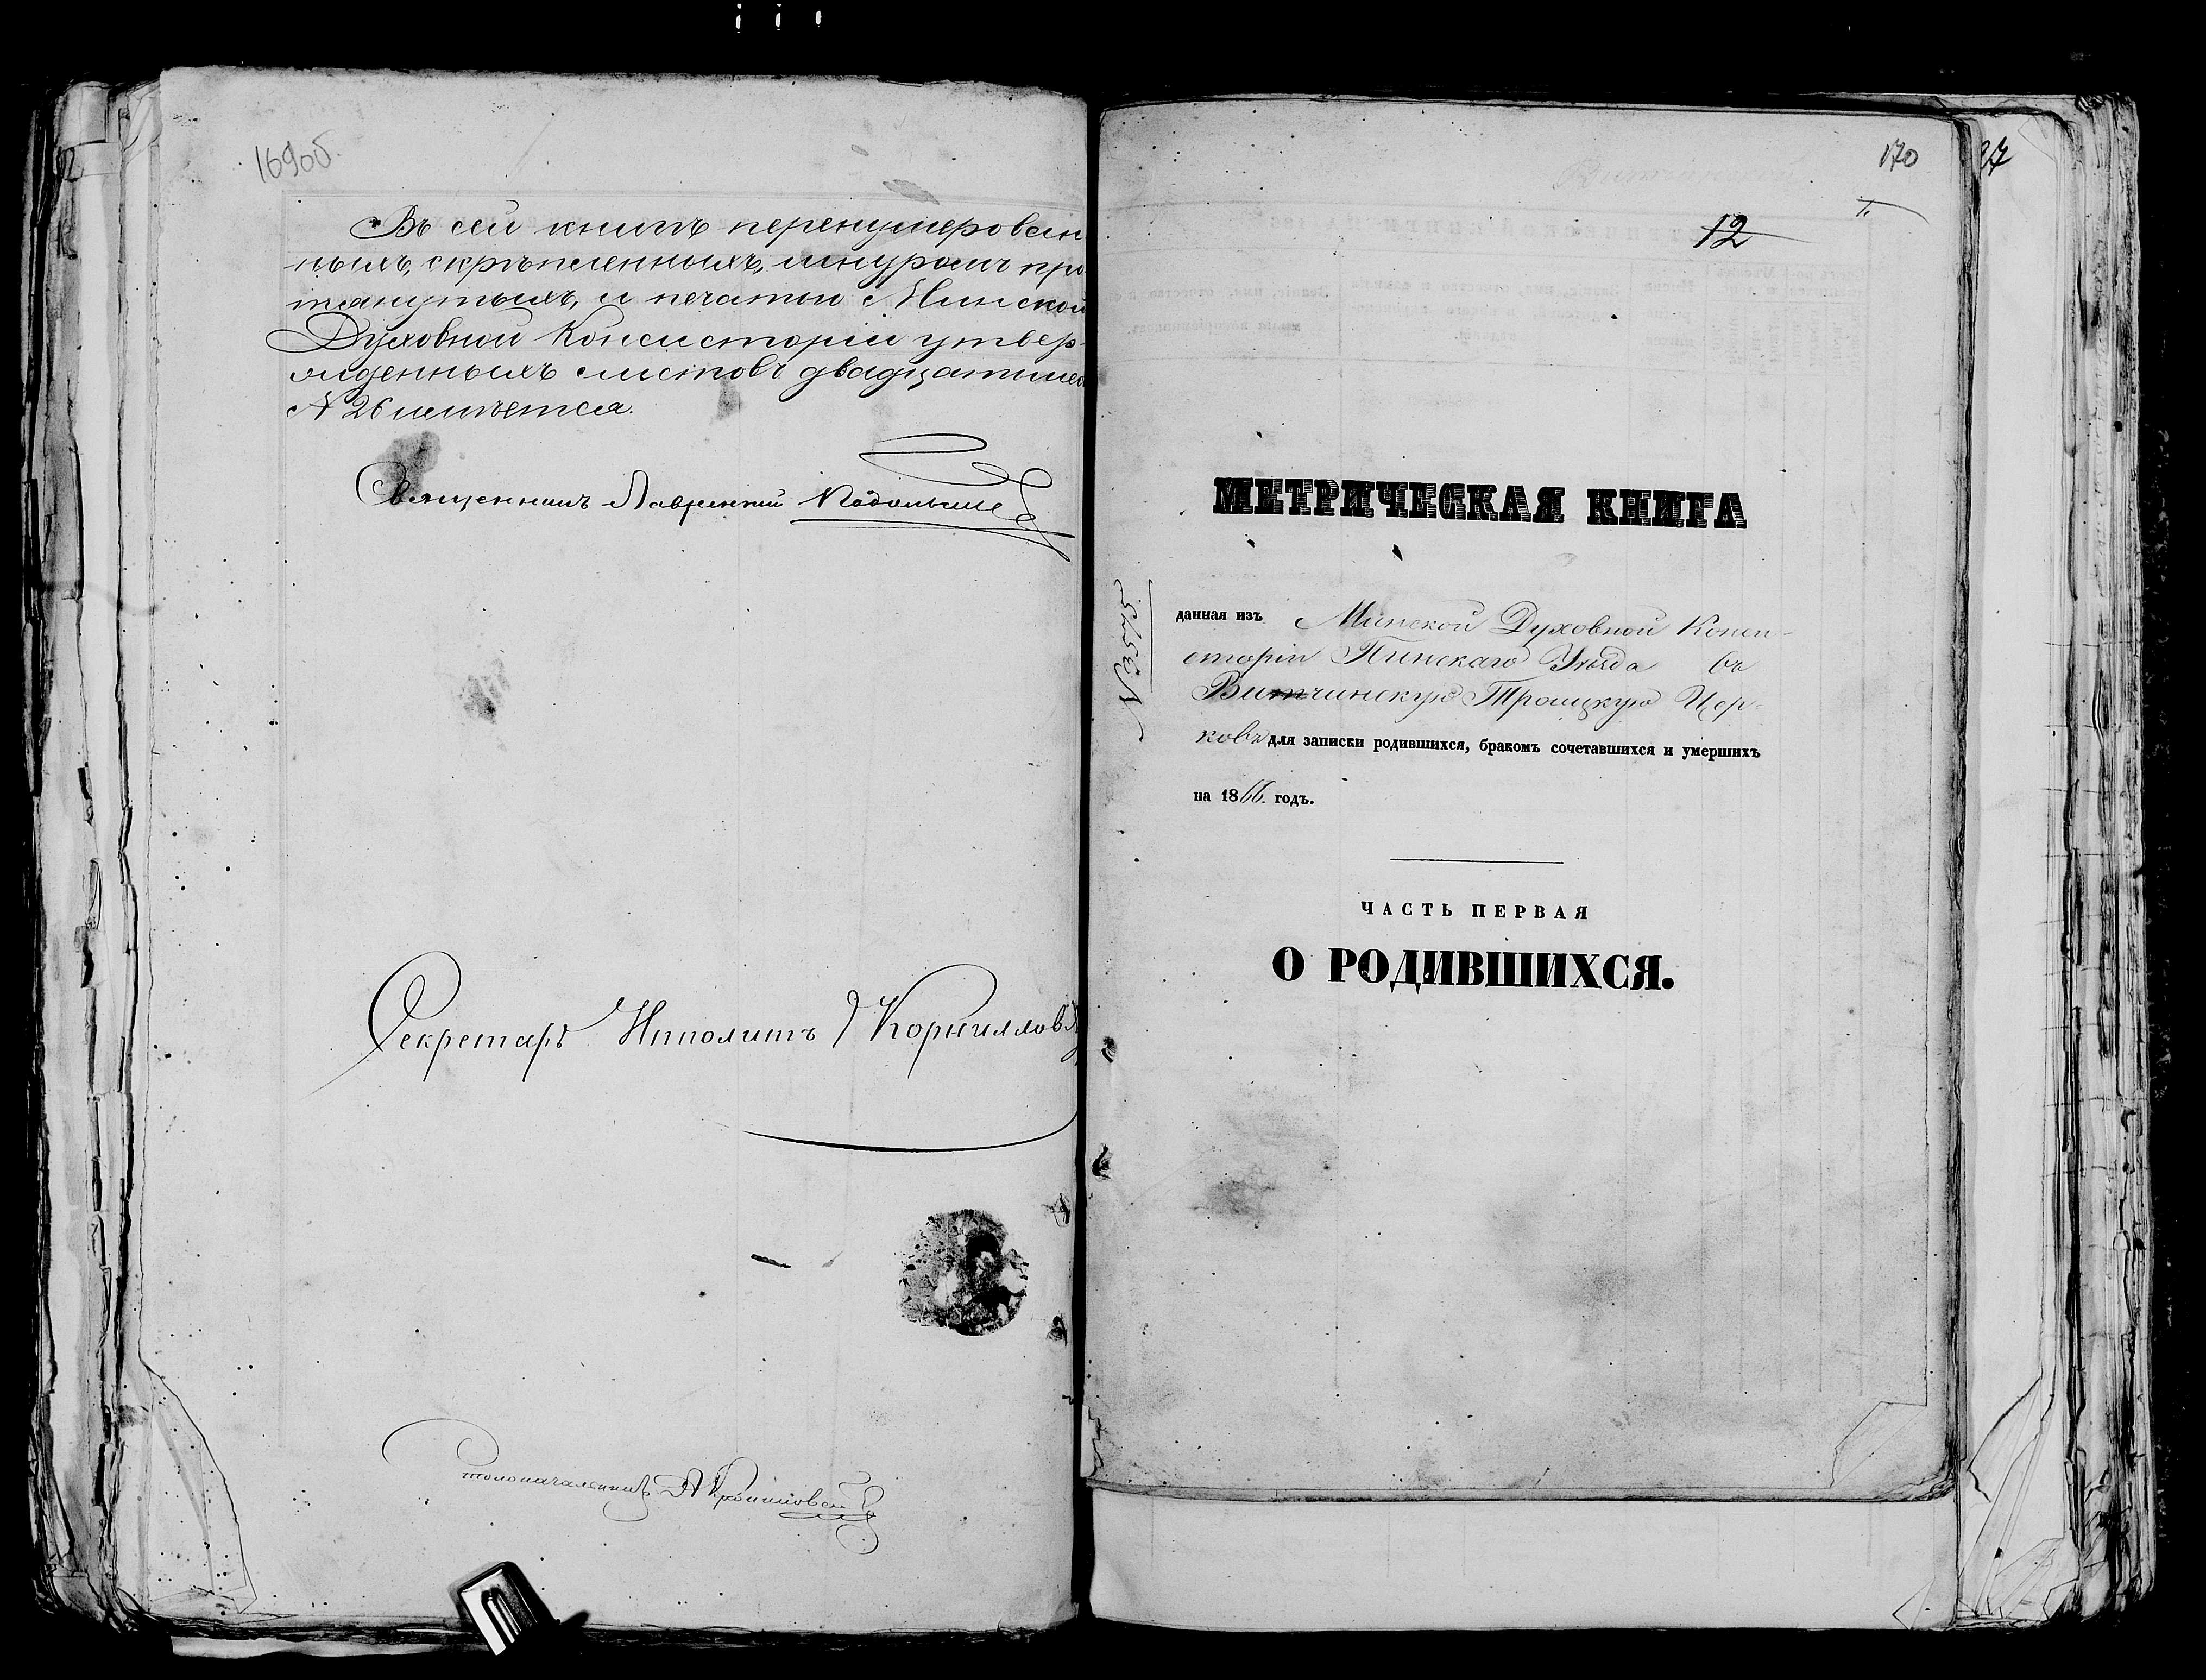 169об.
Въ сей книгѣ перенумерован
ныхъ, скрѣпленныхъ, шнуромъ про
тянутыхъ, и печатью Минской
Духовной Консисторіи утвер-
жденныхъ листовъ двадцатьшес
№ 26 имѣется.
Священникъ Лаврентій
Секретарь Ипполитъ Корнилов
Столоначальникъ
170
27
1.
12
МЕТРИЧЕСКАЯ КНИГА
данная изъ Минской Духовной Конси-
сторіи Пинскаго Уѣзда въ
Витчинскую Троицкую Цер-
ковь для записки родившихся, бракомъ сочетавшихся и умершихъ
на 1866. годъ.
ЧАСТЬ ПЕРВАЯ
О РОДИВШИХСЯ.